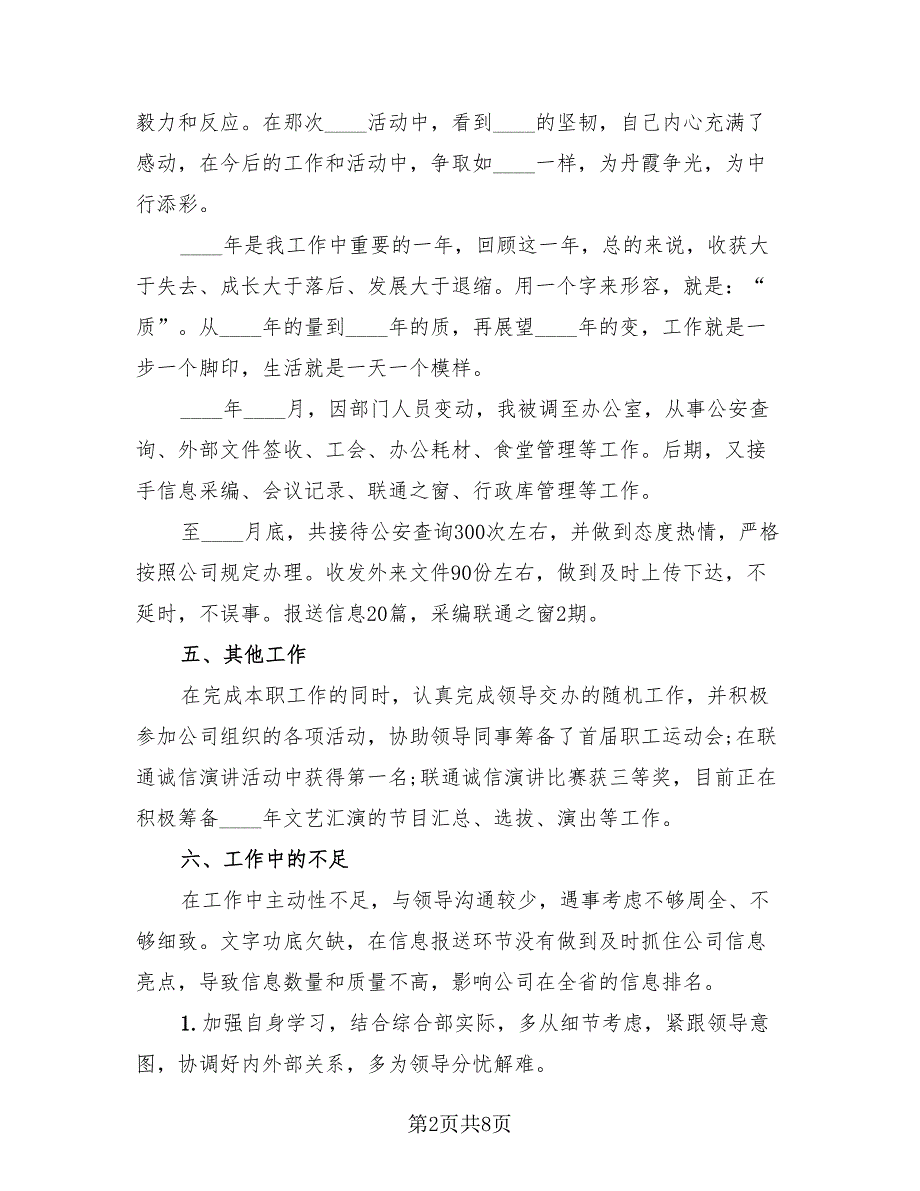 毅力和反应。在那次____活动中，看到____的坚韧，自己内心充满了
感动，在今后的工作和活动中，争取如____一样，为丹霞争光，为中
行添彩。
____年是我工作中重要的一年，回顾这一年，总的来说，收获大
于失去、成长大于落后、发展大于退缩。用一个字来形容，就是：“
质”。从____年的量到____年的质，再展望____年的变，工作就是一
步一个脚印，生活就是一天一个模样。
____年____月，因部门人员变动，我被调至办公室，从事公安查
询、外部文件签收、工会、办公耗材、食堂管理等工作。后期，又接
手信息采编、会议记录、联通之窗、行政库管理等工作。
至____月底，共接待公安查询300次左右，并做到态度热情，严格
按照公司规定办理。收发外来文件90份左右，做到及时上传下达，不
延时，不误事。报送信息20篇，采编联通之窗2期。
五、其他工作
在完成本职工作的同时，认真完成领导交办的随机工作，并积极
参加公司组织的各项活动，协助领导同事筹备了首届职工运动会;在联
通诚信演讲活动中获得第一名;联通诚信演讲比赛获三等奖，目前正在
积极筹备____年文艺汇演的节目汇总、选拔、演出等工作。
六、工作中的不足
在工作中主动性不足，与领导沟通较少，遇事考虑不够周全、不
够细致。文字功底欠缺，在信息报送环节没有做到及时抓住公司信息
亮点，导致信息数量和质量不高，影响公司在全省的信息排名。
1.加强自身学习，结合综合部实际，多从细节考虑，紧跟领导意
图，协调好内外部关系，多为领导分忧解难。
第2页共8页